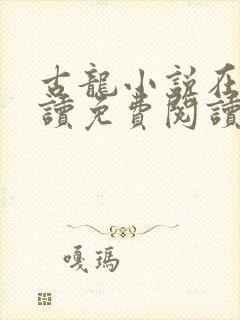 古龍小說在
讀免費閱讀
嘎瑪